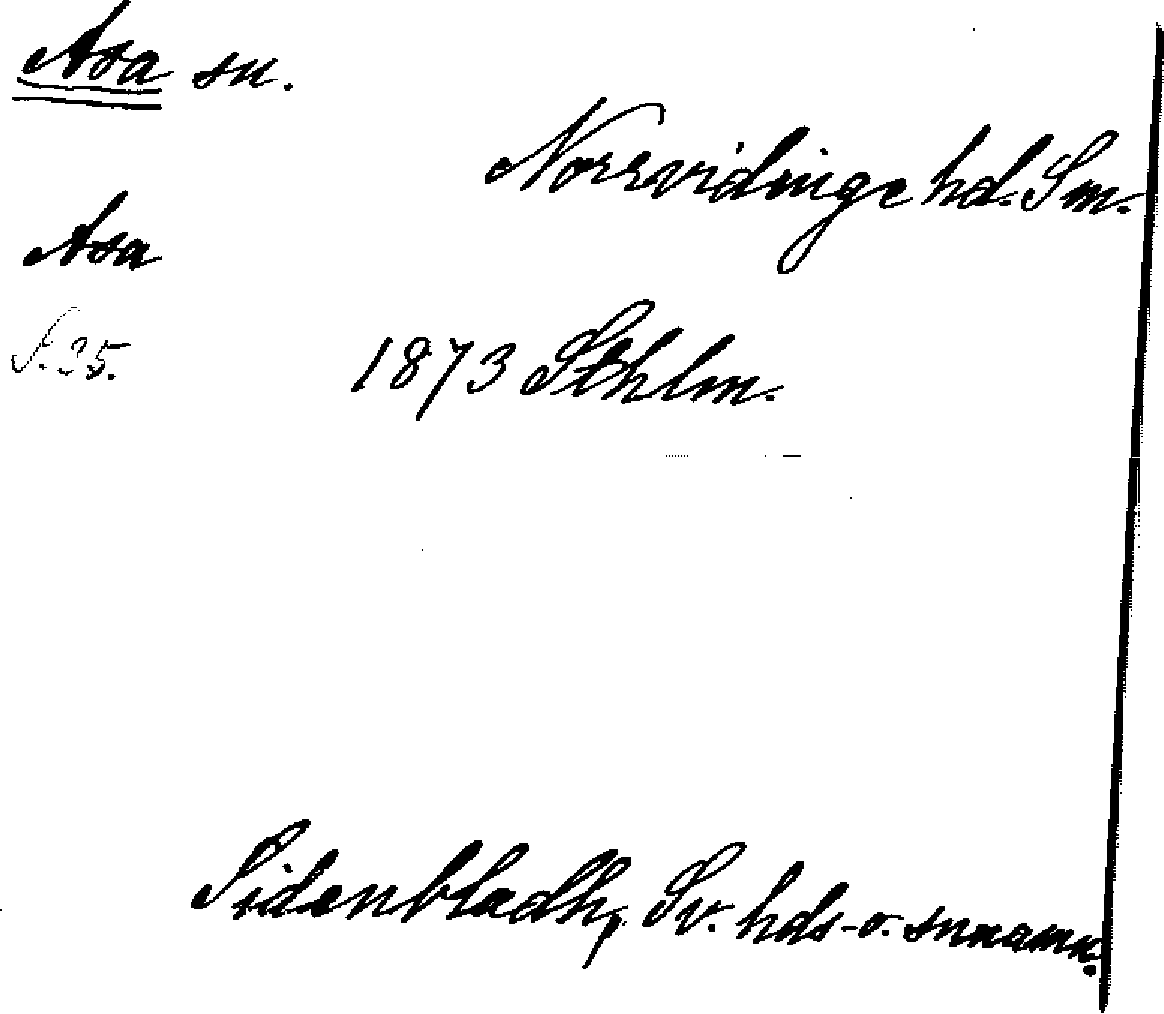 Asa sn.
Norrvidinge hd. Sm.
Asa
S. 25.
1873 Sthlm.
Sidenbladh, Sv. hds- o. snnamn.